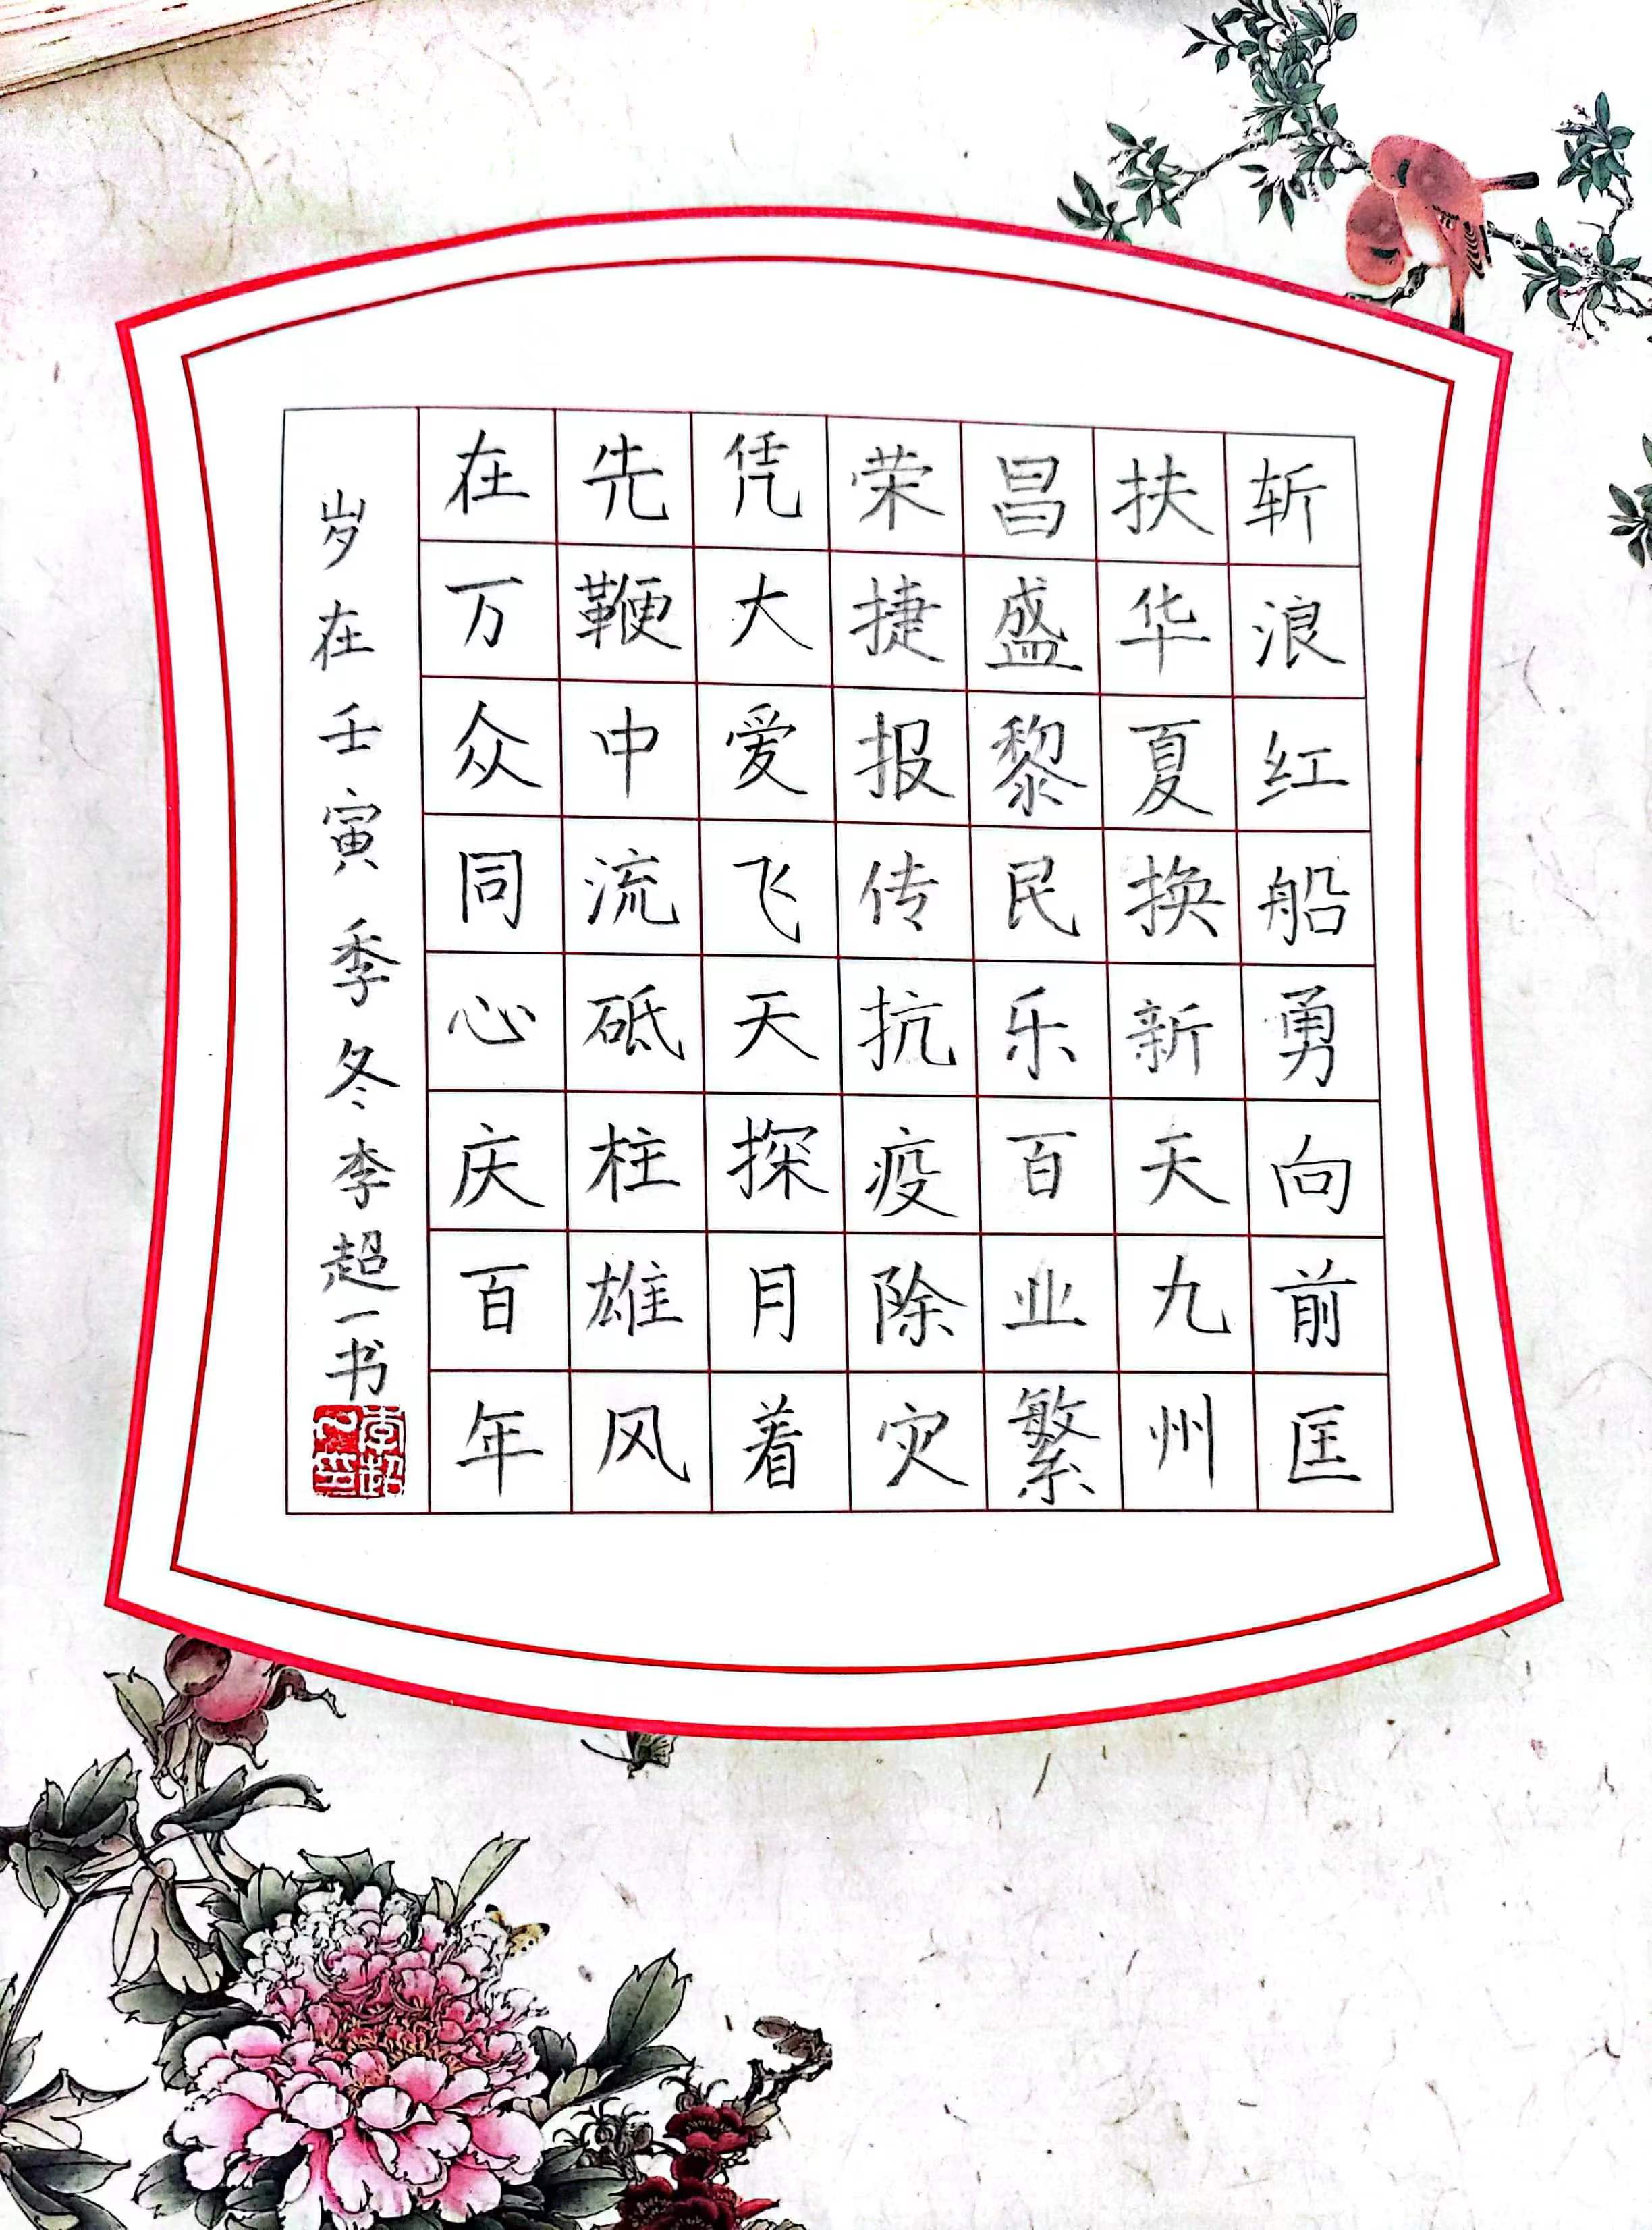 斩浪红船勇向前匡
扶华夏换新天九州
昌盛黎民乐百业繁
荣捷报传抗疫除灾
凭大爱飞天探月着
先鞭中流砥柱雄风
在万众同心庆百年
岁在壬寅季冬李超一书